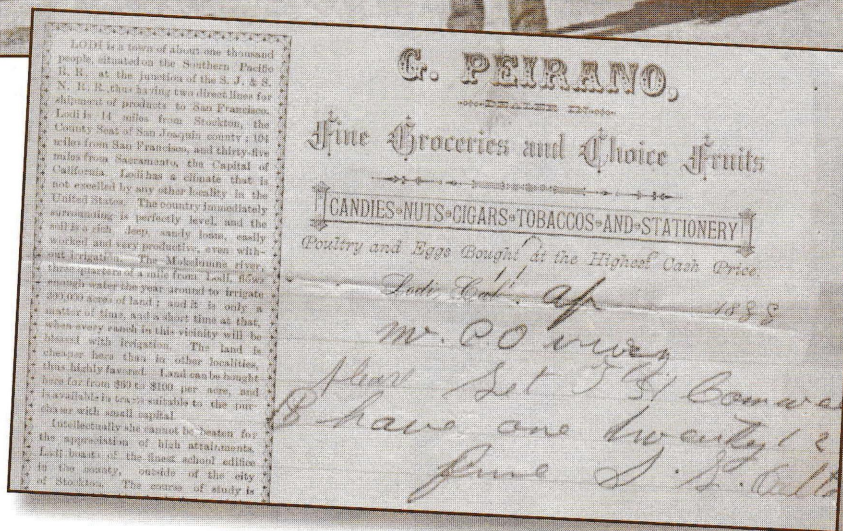 LODI is a town of about one thousand
people, situated on the Southern Pacific
R. R., at the junction of the S. J. & S.
N. R. R., thus having two direct lines for
shipment of products to San Francisco.
Lodi is 14 miles from Stockton, the
County Seat of San Joaquin county; 104
miles from San Francisco, and thirty-five
miles from Sacramento, the Capital of
California. Lodi has a climate that is
not excelled by any other locality in the
United States. The country immediately
surrounding is perfectly level, and the
soil is a rich, deep, sandy loam, easily
worked and very productive, even with-
out irrigation. The Mokelumne river,
three-quarters of a mile from Lodi, flows
enough water the year around to irrigate
200,000 acres of land; and it is only a
matter of time, and a short time at that,
when every ranch in this vicinity will be
blessed with irrigation. The land is
cheaper here than in other localities,
thus highly favored. Land can be bought
here for from $60 to $100 per acre, and
is available in tracts suitable to the pur-
chaser with small capital.
Intellectually she cannot be beaten for
the appreciation of high attainments.
Lodi boasts of the finest school edifice
in the county, outside of the city
of Stockton. The course of study is
G. PEIRANO,
DEALER IN
Fine Groceries and Choice Fruits
CANDIES NUTS CIGARS TOBACCOS AND STATIONERY
Poultry and Eggs Bought at the Highest Cash Price.
Lodi, Cal. Ap 1888
Mr. P O
Let
I have one twenty 12
S. S.